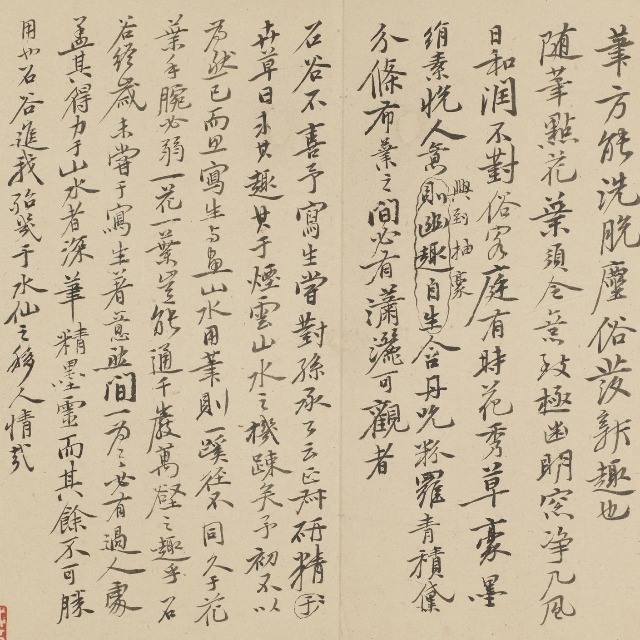 筆方能洗脫塵俗發新趣也
随筆點花葉須令意致極幽明窓净几風
日和潤不對俗客庭有時花秀草豪墨
絹素悅人意則幽趣自生含丹吮粉羅青積黛
興到抽豪
分條布葉之間必有瀟灑可觀者
石谷不喜予寫生嘗對孫承公云正叔研精于
卉草日求其趣其于煙雲山水之機踈矣予初不以
為然已而思寫生與畫山水用筆則一蹊徑不同久于花
葉手腕必弱一花一葉豈能通千巖萬壑之趣乎石
谷終歲未嘗于寫生著意然間一為之必有過人處
盖其得力于山水者深筆精墨靈而其餘不可勝
用也石谷進我殆幾于水仙之移人情哉